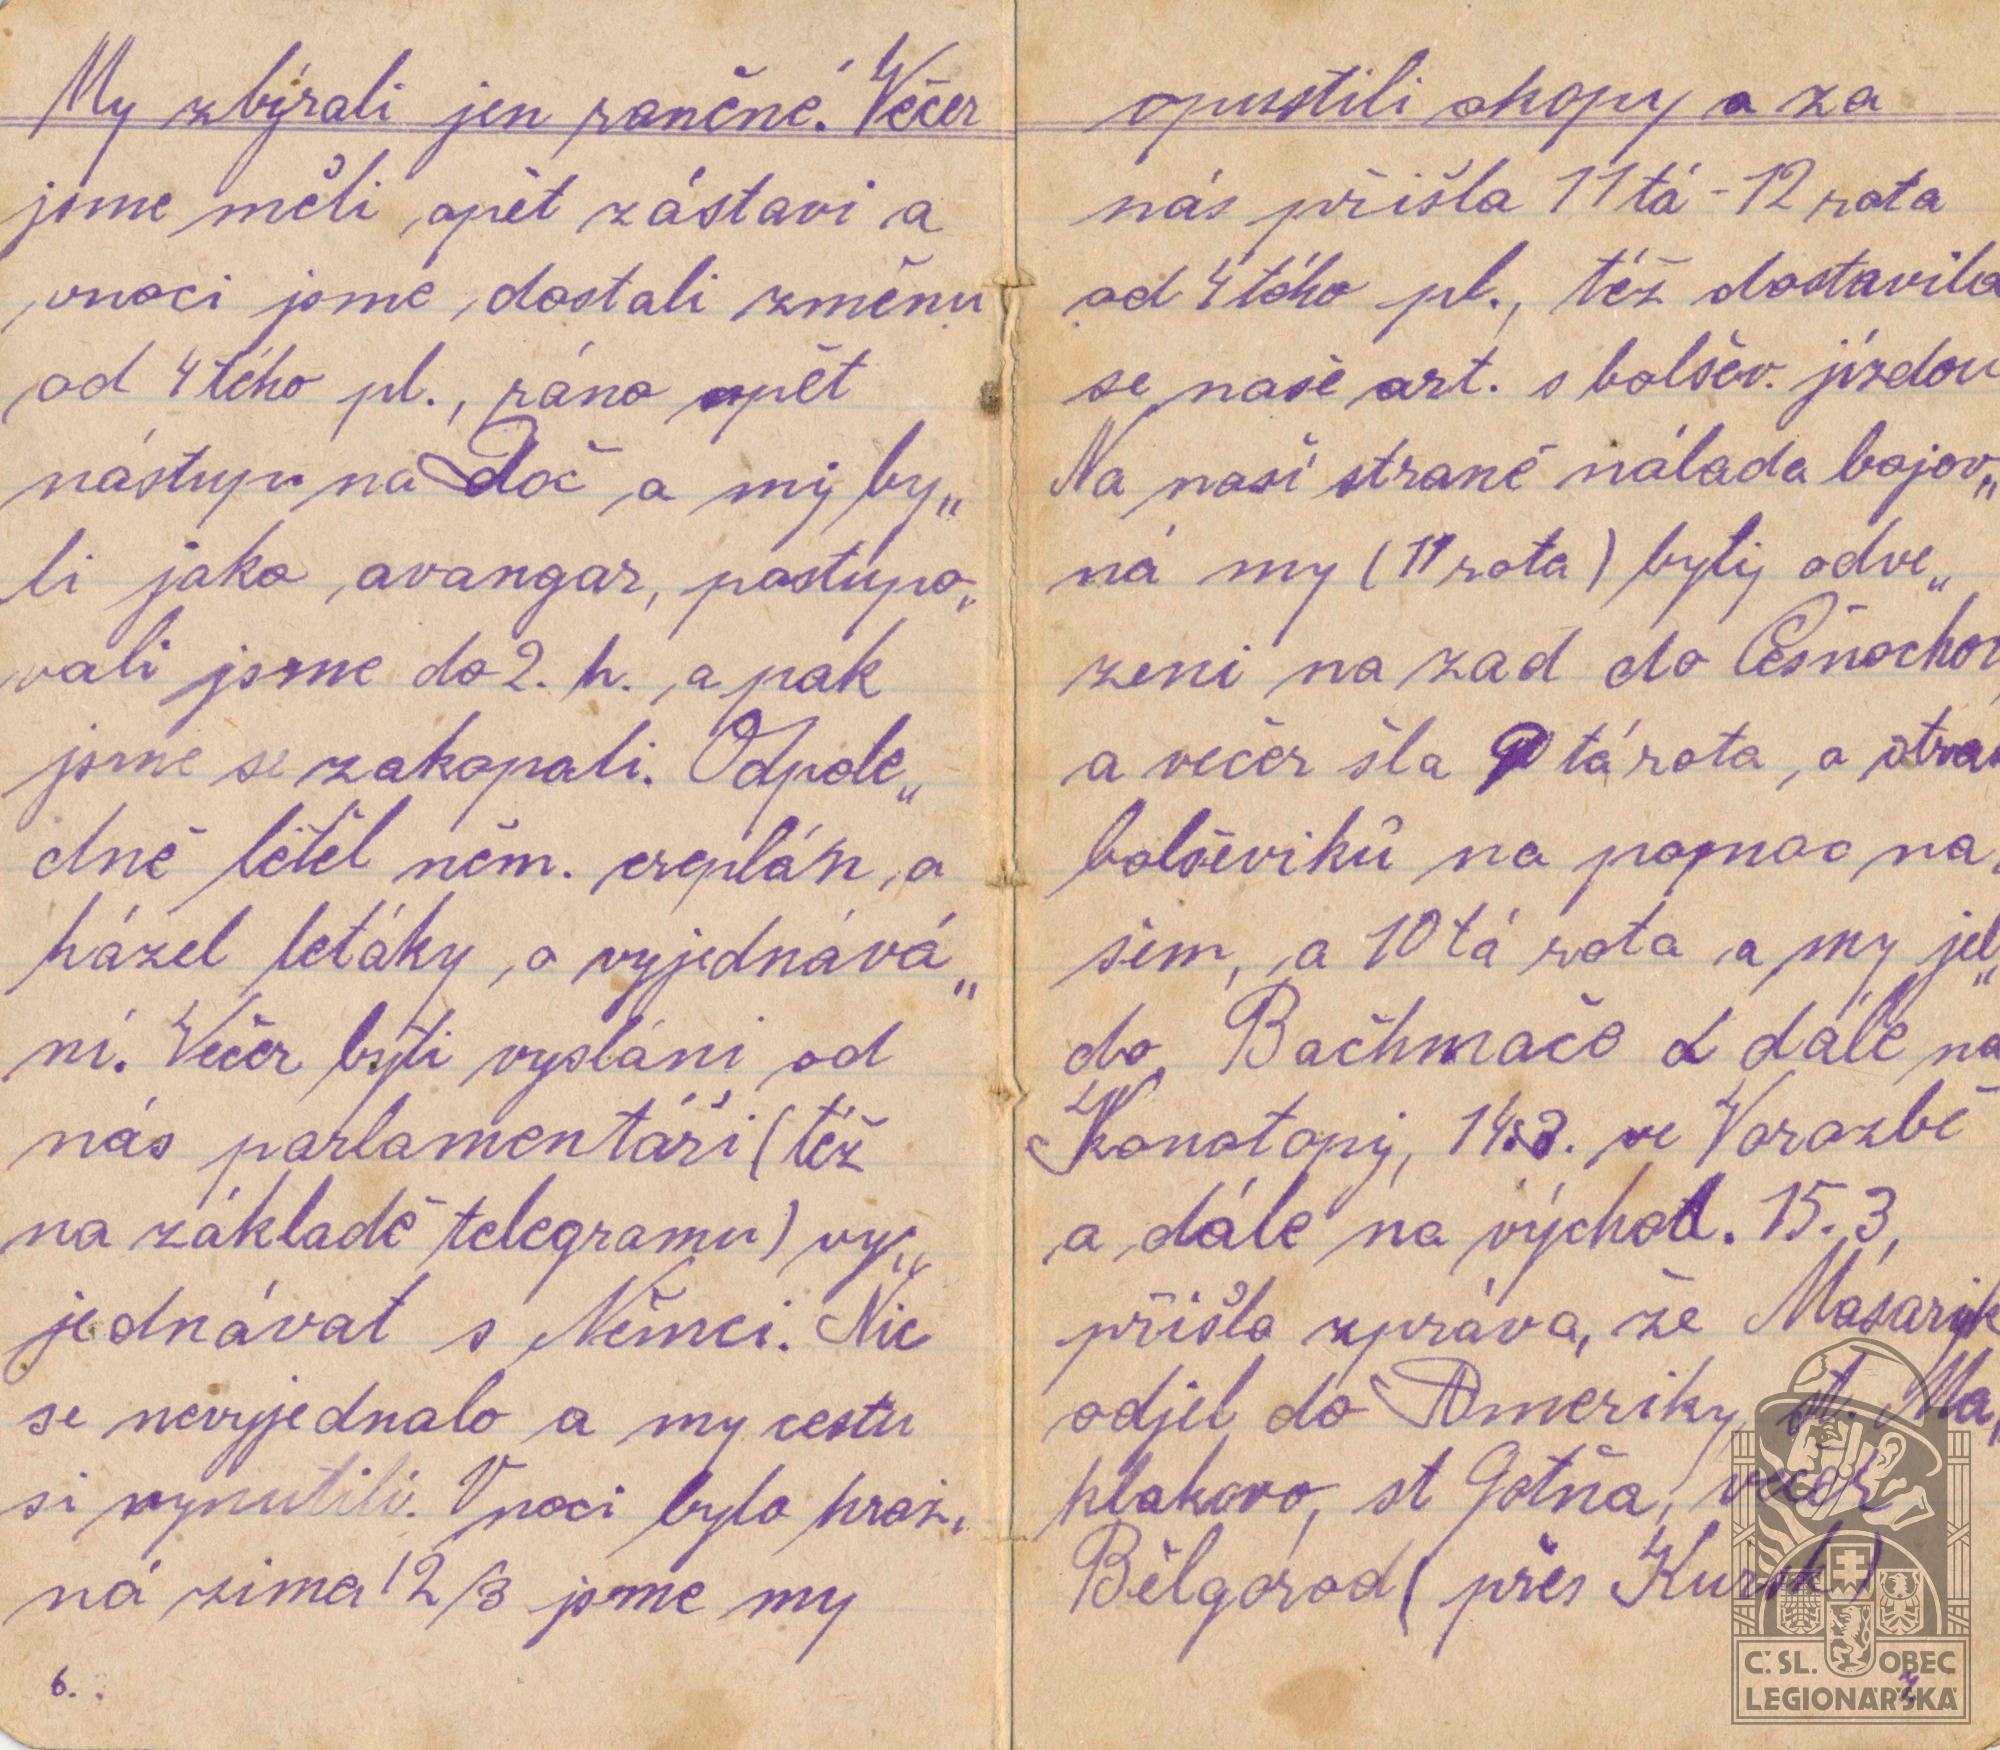 My zbírali jen raněné. Večer
jsme měli opět zástavi a
vnoci jsme dostali změnu
od 4tého pl., ráno opět
nástup na Doč a mý by„
li jako avangar, postupo„
vali jsme do 2. h. a pak
jsme se zakopali. Odpole„
dně lětěl něm. ereplán a
házel letáky, o vyjednává„
ní. Večer byli vysláni od
nás parlamentáři (též
na základě telegramu) vy„
jednávat s Němci. Nic
se nevyjednalo a my cestu
si vynutili. V noci byla hroz„
ná zima 12/3 jsme my
6.
opustili okopy a za
nás přišla 11tá - 12 rota
od 4tého pl., též dostavila
se naše art. s bolšev. jízdou
Na naší straně nálada bojov„
ná my (11 rota) byly odve„
zeni na zad do Česnochov
a večer šla 9tá rota, a
bolševiků na pomoc na
šem, a 10tá rota a my jel„
do Bachmače a dále na
Konotopy, 14.3. ve Vorozbě
a dále na východ. 15.3.
přišla zpráva, že Masaryk
odjel do Ameriky st. Ma„
klakovo, st Gotňa, večer
Bělgorod (přes Kursk)
7
Č. SL. OBEC
LEGIONÁŘSKÁ